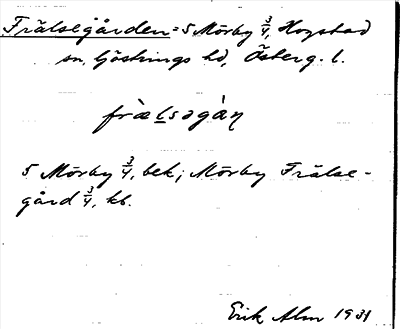 Frälsegården = 5 Mörby 3/4, Hogstad
sn, Göstrings hd, Österg. l.
fràelsəgàɳ
5 Mörby 3/4, bek; Mörby Frälse-
gård 3/4, kb.
Erik Alm 1931